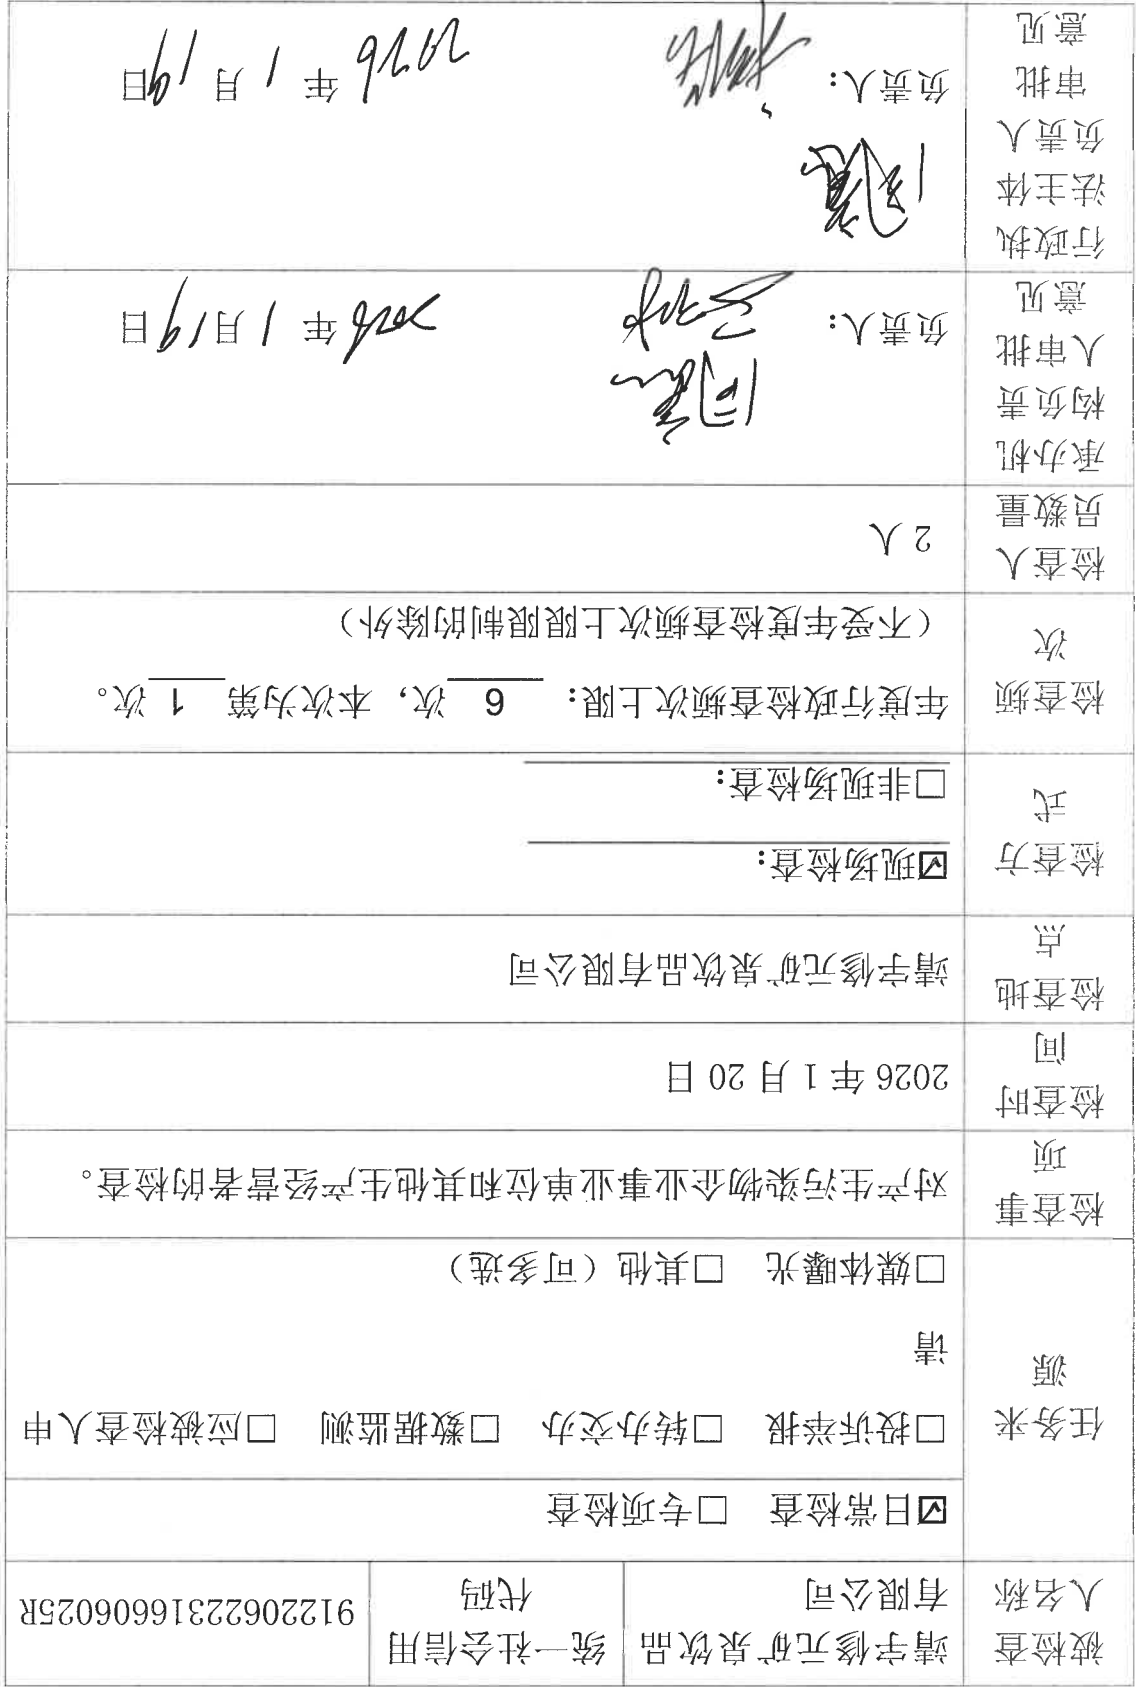 被检查
人名称
靖宇修元矿泉饮品
有限公司
统一社会信用
代码
91220622316606025R
任务来
源
☑日常检查 □专项检查
□投诉举报 □转办交办 □数据监测 □应被检查人申
请
□媒体曝光 □其他（可多选）
检查事
项
对产生污染物企业事业单位和其他生产经营者的检查。
检查时
间
2026 年 1 月 20 日
检查地
点
靖宇修元矿泉饮品有限公司
检查方
式
☑现场检查：
□非现场检查：
检查频
次
年度行政检查频次上限： 6 次，本次为第 1 次。
（不受年度检查频次上限限制的除外）
检查人
员数量
2 人
承办机
构负责
人审批
意见
同意
负责人：
2026 年 1 月 19 日
行政执
法主体
负责人
审批
意见
同意
负责人：
2026 年 1 月 19 日